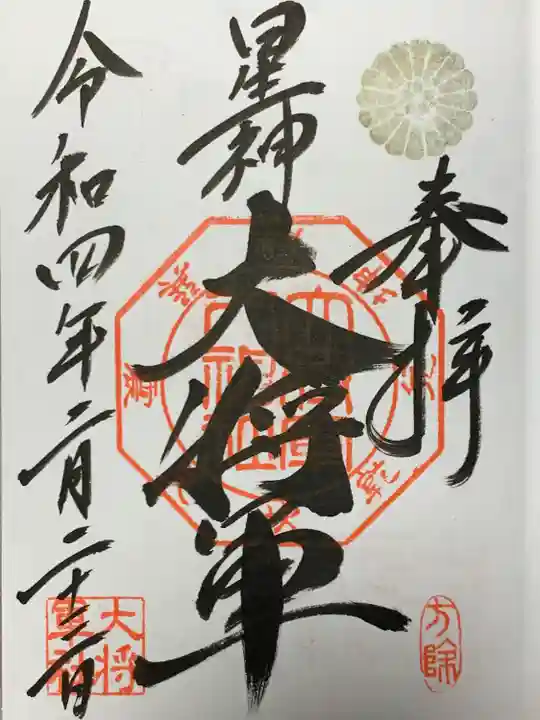 奉拝
星神
大将軍
令和四年二月二十三日
大将軍社
方除